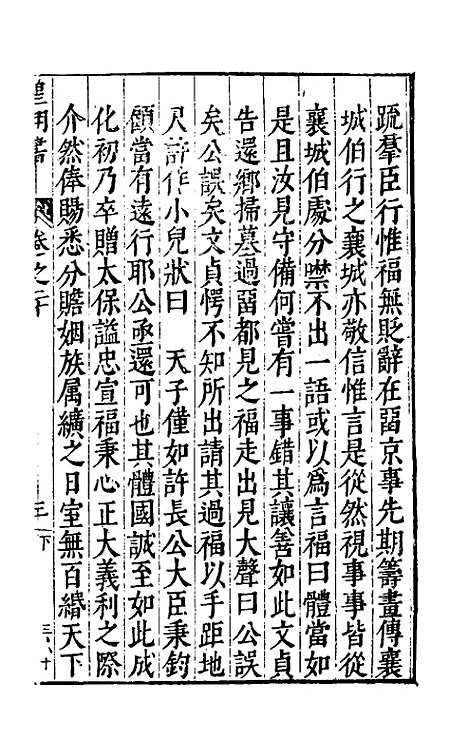 疏羣臣行惟福無貶辭在畱京事先期籌畫傳襄
城伯行之襄城亦敬信惟言是從然視事事皆從
襄城伯處分噤不出一語或以爲言福曰體當如
是且汝見守備何嘗有一事錯其讓善如此文貞
告還鄉掃墓過畱都見之福走出見大聲曰公誤
矣公誤矣文貞愕不知所出請其過福以手距地
尺許作小兒狀曰　天子僅如許長公大臣秉鈞
顧當有遠行耶公亟還可也其體國誠至如此成
化初乃卒贈太保謚忠宣福秉心正大義利之際
介然俸賜悉分贍姻族属纊之日室無百緡天下
皇明書　卷之二十